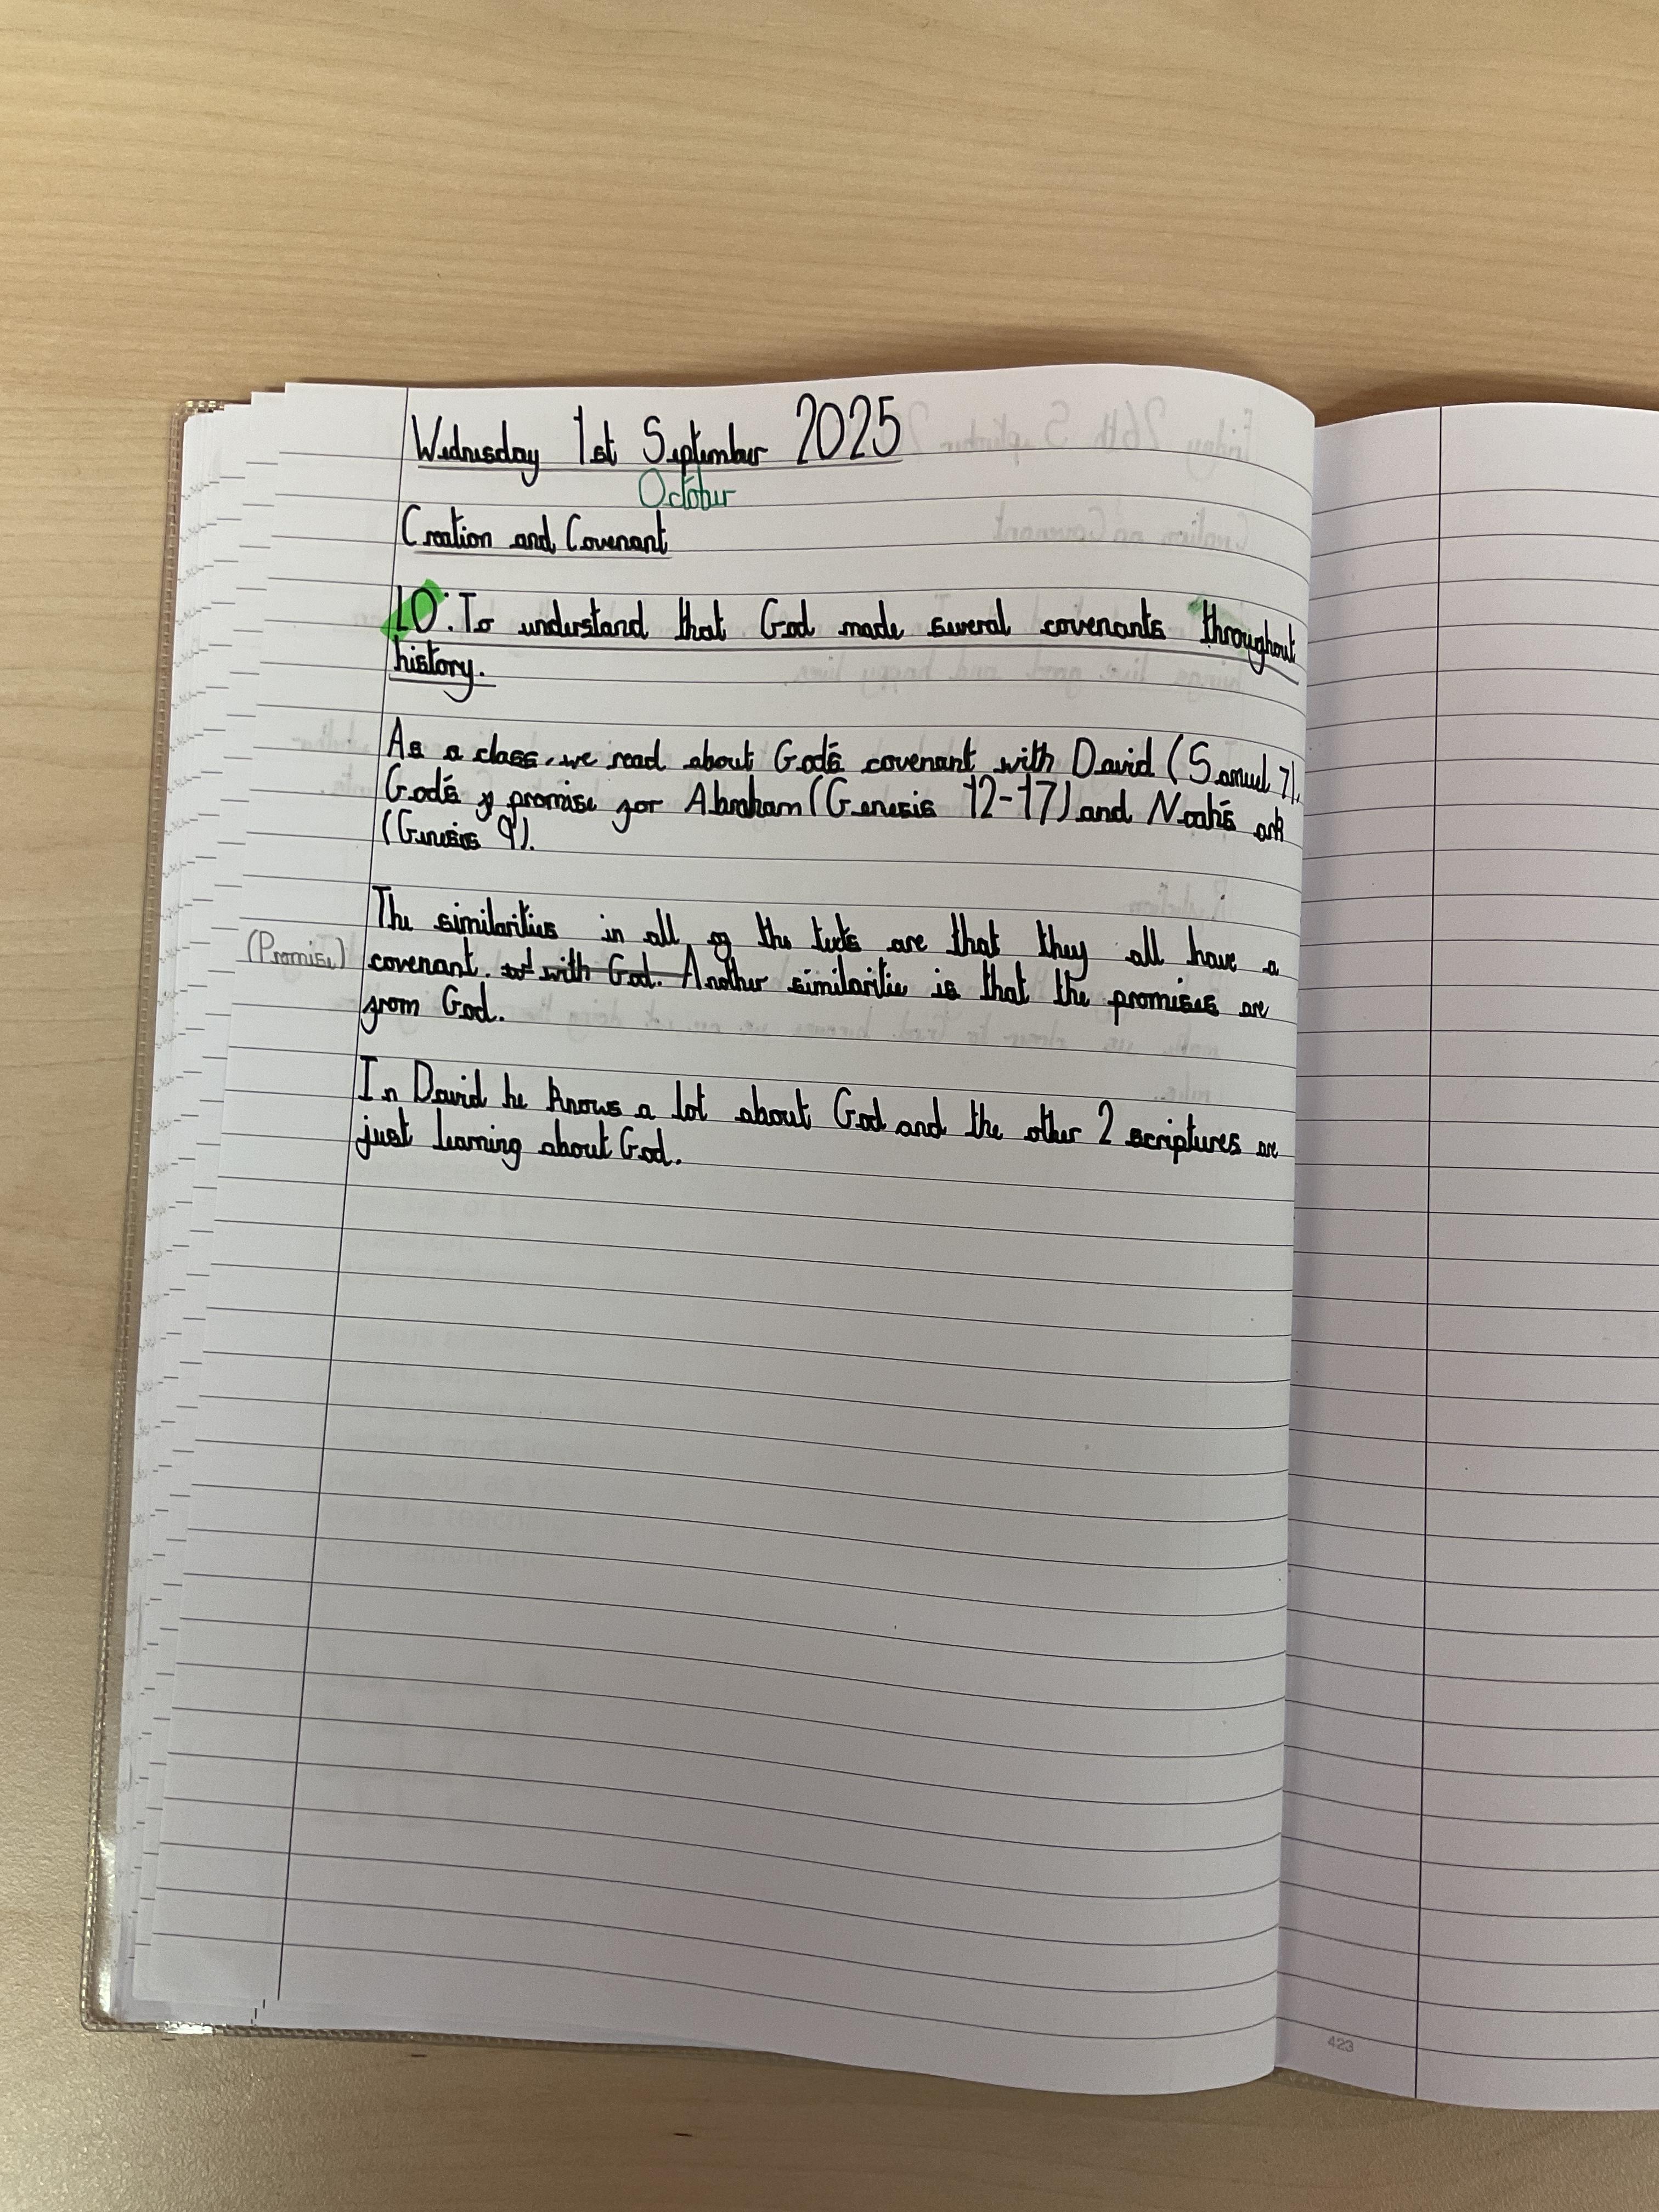 Wednesday 1st September 2025
October
Creation and Covenant
LO: To understand that God made several covenants throughout
history.
As a class, we read about God's covenant with David (Samuel 7),
God's promise for Abraham (Genesis 12-17) and Noah's ark
(Genesis 9).
The similarities in all of the texts are that they all have a
(Promise) covenant. with God. Another similaritie is that the promises are
from God.
In David he knows a lot about God and the other 2 scriptures are
just learning about God.
423